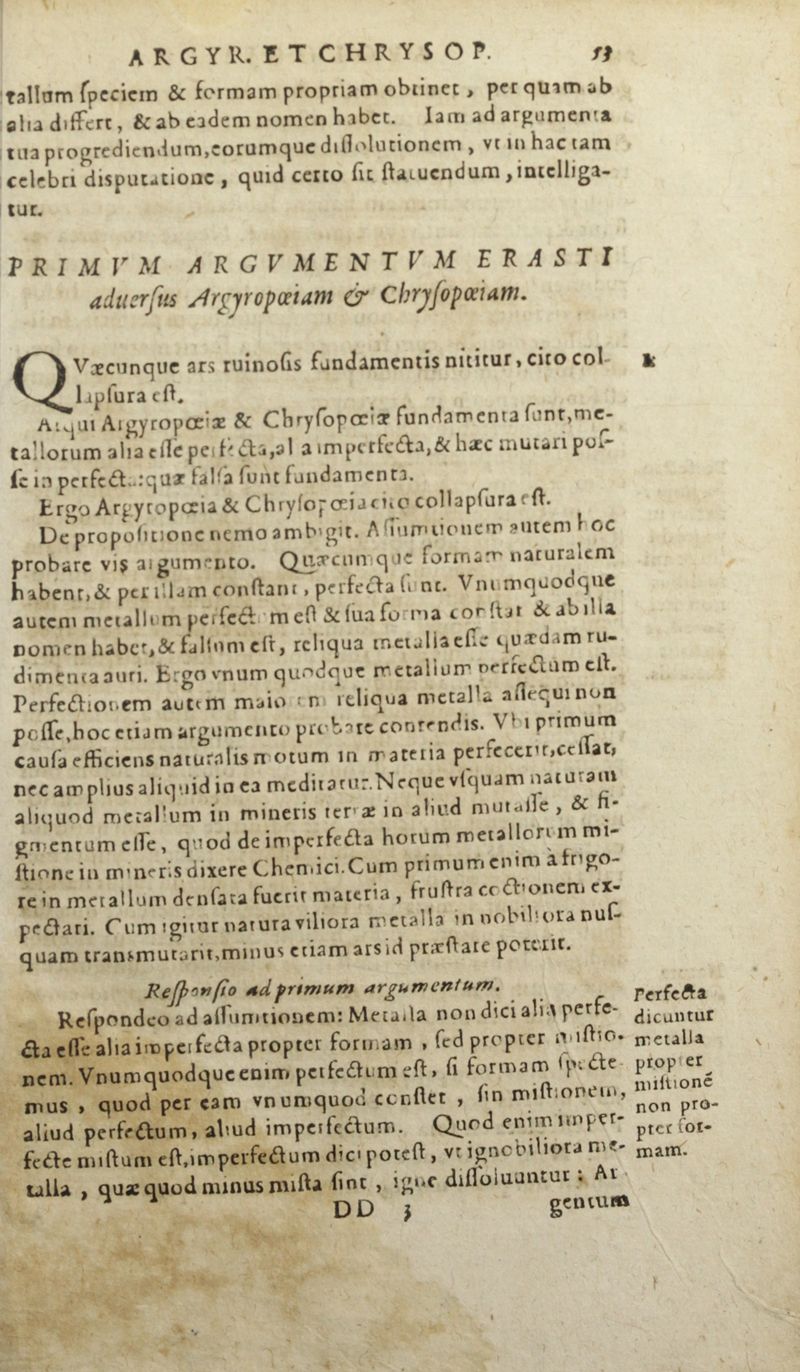 ARGYR. ET CHRYSOP. 53
tallum ſpeciem & formam propriam obtinet, per quam ab
alia differt, & ab eadem nomen habet. Iam ad argumenta
tua progrediendum, eorumque diſſolutionem, vt in hac tam
celebri diſputatione, quid certo ſit ſtatuendum, intelliga-
tur.
PRIMVM ARGVMENTVM ERASTI
aduerſus Argyropœiam & Chryſopœiam.
QVæcunque ars ruinoſis fundamentis nititur, cito col-
lapſura eſt.
Atqui Argyropœiæ & Chryſopœiæ fundamenta ſunt, me-
tallorum alia eſſe perfecta, alia imperfecta, & hæc mutari poſ-
ſe in perfecta: quæ falſa ſunt fundamenta.
Ergo Argyropœia & Chryſopœia cito collapſura eſt.
De propoſitione nemo ambigit. Aſſumtionem autem hoc
probare vis argumento. Quæcunque formam naturalem
habent, & per illam conſtant, perfecta ſunt. Vnumquodque
autem metallum perfectum eſt & ſua forma conſtat & ab illa
nomen habet, & falſum eſt, reliqua metalla eſſe quædam ru-
dimenta auri. Ergo vnum quodque metallum perfectum eſt.
Perfectionem autem maiorem reliqua metalla aſſequi non
poſſe, hoc etiam argumento probare contendis. Vbi primum
cauſa efficiens naturalis motum in materia perfecerit, ceſſat,
nec amplius aliquid in ea meditatur. Neque vſquam naturam
aliquod metallum in mineris terræ in aliud mutaſſe, & fi-
gmentum eſſe, quod de imperfecta horum metallorum mi-
ſtione in mineris dixere Chemici. Cum primum enim a frigo-
re in metallum denſata fuerit materia, fruſtra coctionem ex-
pectari. Cum igitur natura viliora metalla in nobiliora nuſ-
quam tranſmutarit, minus etiam ars id præſtare poterit.
Reſponſio ad primum argumentum.
Reſpondeo ad aſſumtionem: Metalla non dici alia perfe-
cta eſſe alia imperfecta propter formam, ſed propter miſtio-
nem. Vnumquodque enim perfectum eſt, ſi formam ſpecte-
mus, quod per eam vnumquod conſtet, ſin miſtionem,
aliud perfectum, aliud imperfectum. Quod enim imper-
fecte miſtum eſt, imperfectum dici poteſt, vt ignobiliora me-
talla, quæ quod minus miſta ſint, igne diſſoluuntur: Ar
Perfecta
dicuntur
metalla
propter
miſtionẽ
non pro-
pter for-
mam.
DD 3 gentum